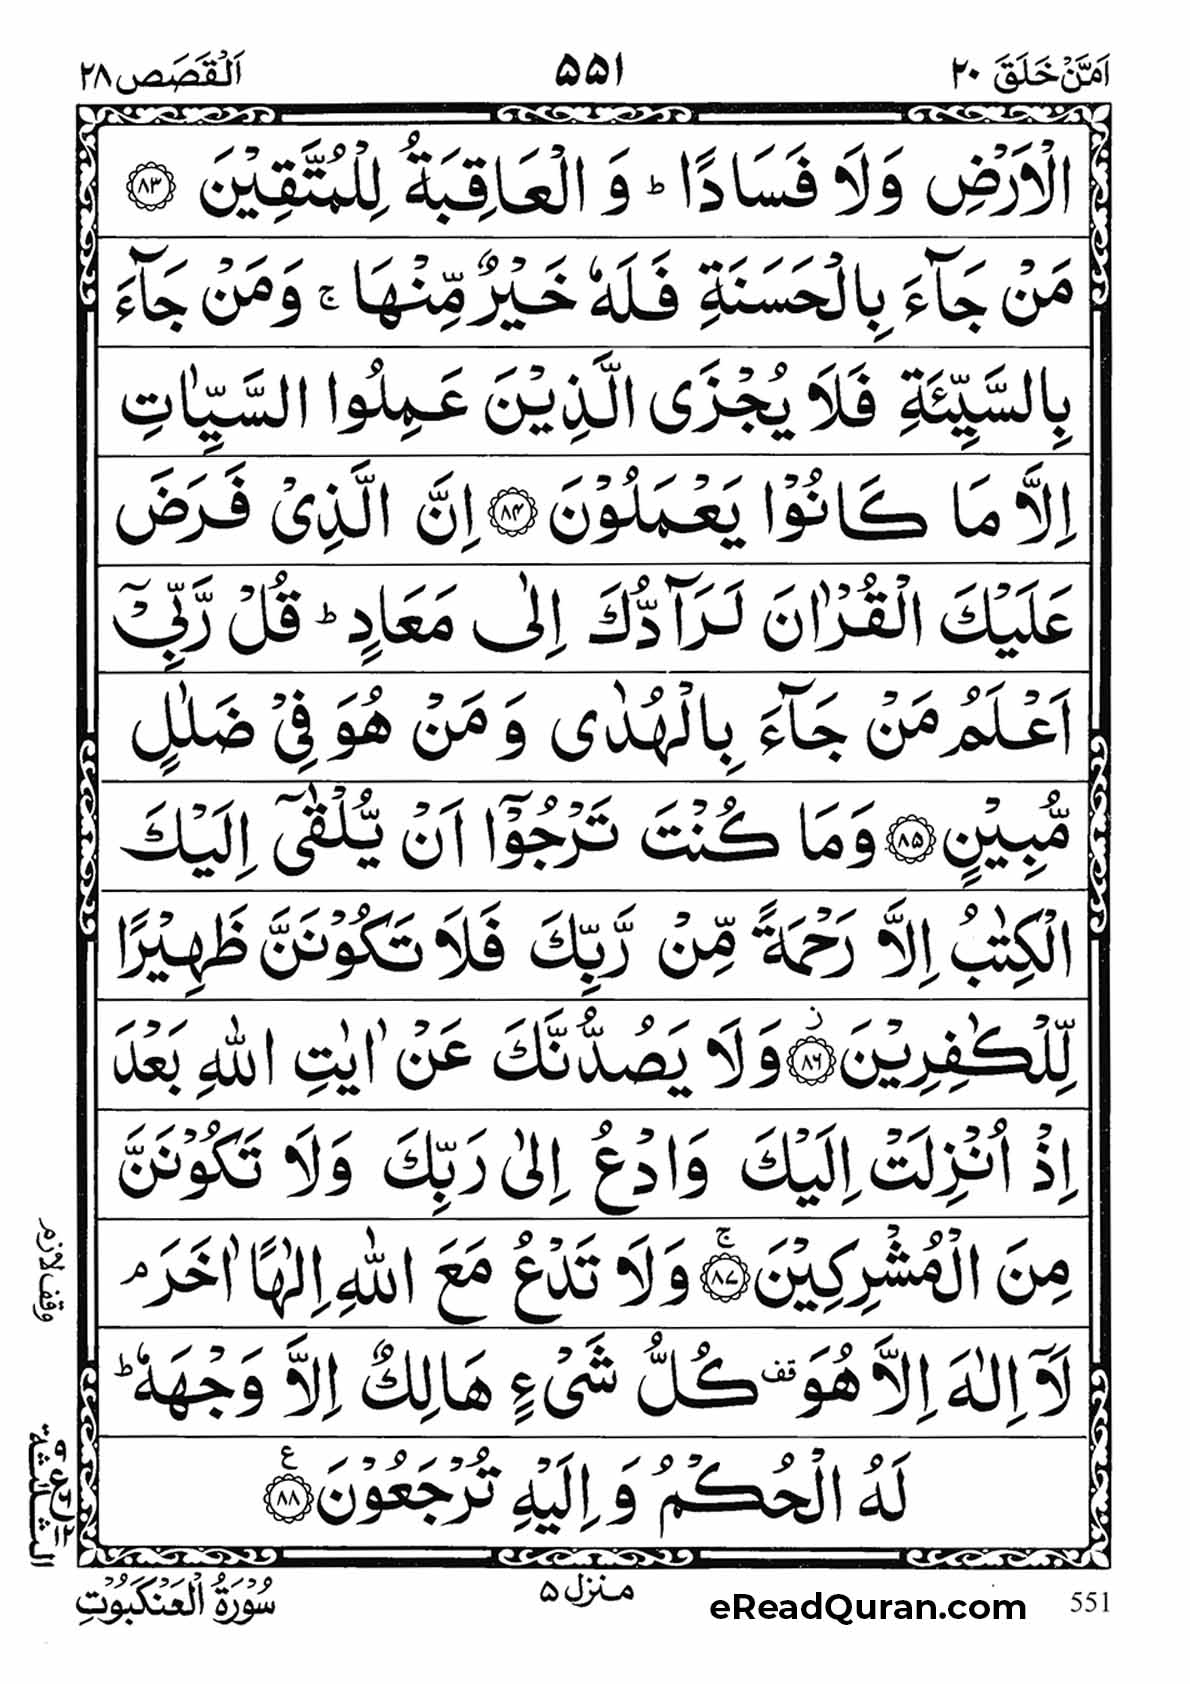 اَمَّنْ خَلَقَ ٢٠
٥٥١
اَلْقَصَص ٢٨
الْاَرْضِ وَلَا فَسَادًا ؕ وَ الْعَاقِبَةُ لِلْمُتَّقِيْنَ ﴿٨٣﴾
مَنْ جَآءَ بِالْحَسَنَةِ فَلَهٗ خَيْرٌ مِّنْهَا ۚ وَمَنْ جَآءَ
بِالسَّيِّئَةِ فَلَا يُجْزَى الَّذِيْنَ عَمِلُوا السَّيِّاٰتِ
اِلَّا مَا كَانُوْا يَعْمَلُوْنَ ﴿٨٤﴾ اِنَّ الَّذِىْ فَرَضَ
عَلَيْكَ الْقُرْاٰنَ لَرَآدُّكَ اِلٰى مَعَادٍ ؕ قُلْ رَّبِّىْٓ
اَعْلَمُ مَنْ جَآءَ بِالْهُدٰى وَ مَنْ هُوَ فِىْ ضَلٰلٍ
مُّبِيْنٍ ﴿٨٥﴾ وَمَا كُنْتَ تَرْجُوْٓا اَنْ يُّلْقٰٓى اِلَيْكَ
الْكِتٰبُ اِلَّا رَحْمَةً مِّنْ رَّبِّكَ فَلَا تَكُوْنَنَّ ظَهِيْرًا
لِّلْكٰفِرِيْنَ ﴿٨٦﴾ ز وَلَا يَصُدُّنَّكَ عَنْ اٰيٰتِ اللّٰهِ بَعْدَ
اِذْ اُنْزِلَتْ اِلَيْكَ وَادْعُ اِلٰى رَبِّكَ وَلَا تَكُوْنَنَّ
مِنَ الْمُشْرِكِيْنَ ﴿٨٧﴾ ۚ وَلَا تَدْعُ مَعَ اللّٰهِ اِلٰهًا اٰخَرَ ۘ
لَآ اِلٰهَ اِلَّا هُوَ قف كُلُّ شَىْءٍ هَالِكٌ اِلَّا وَجْهَهٗ ؕ
لَهُ الْحُكْمُ وَ اِلَيْهِ تُرْجَعُوْنَ ﴿٨٨﴾ ع
وقف لازم
سُوْرَةُ الْعَنْكَبُوْتِ
منزل ٥
eReadQuran.com
551